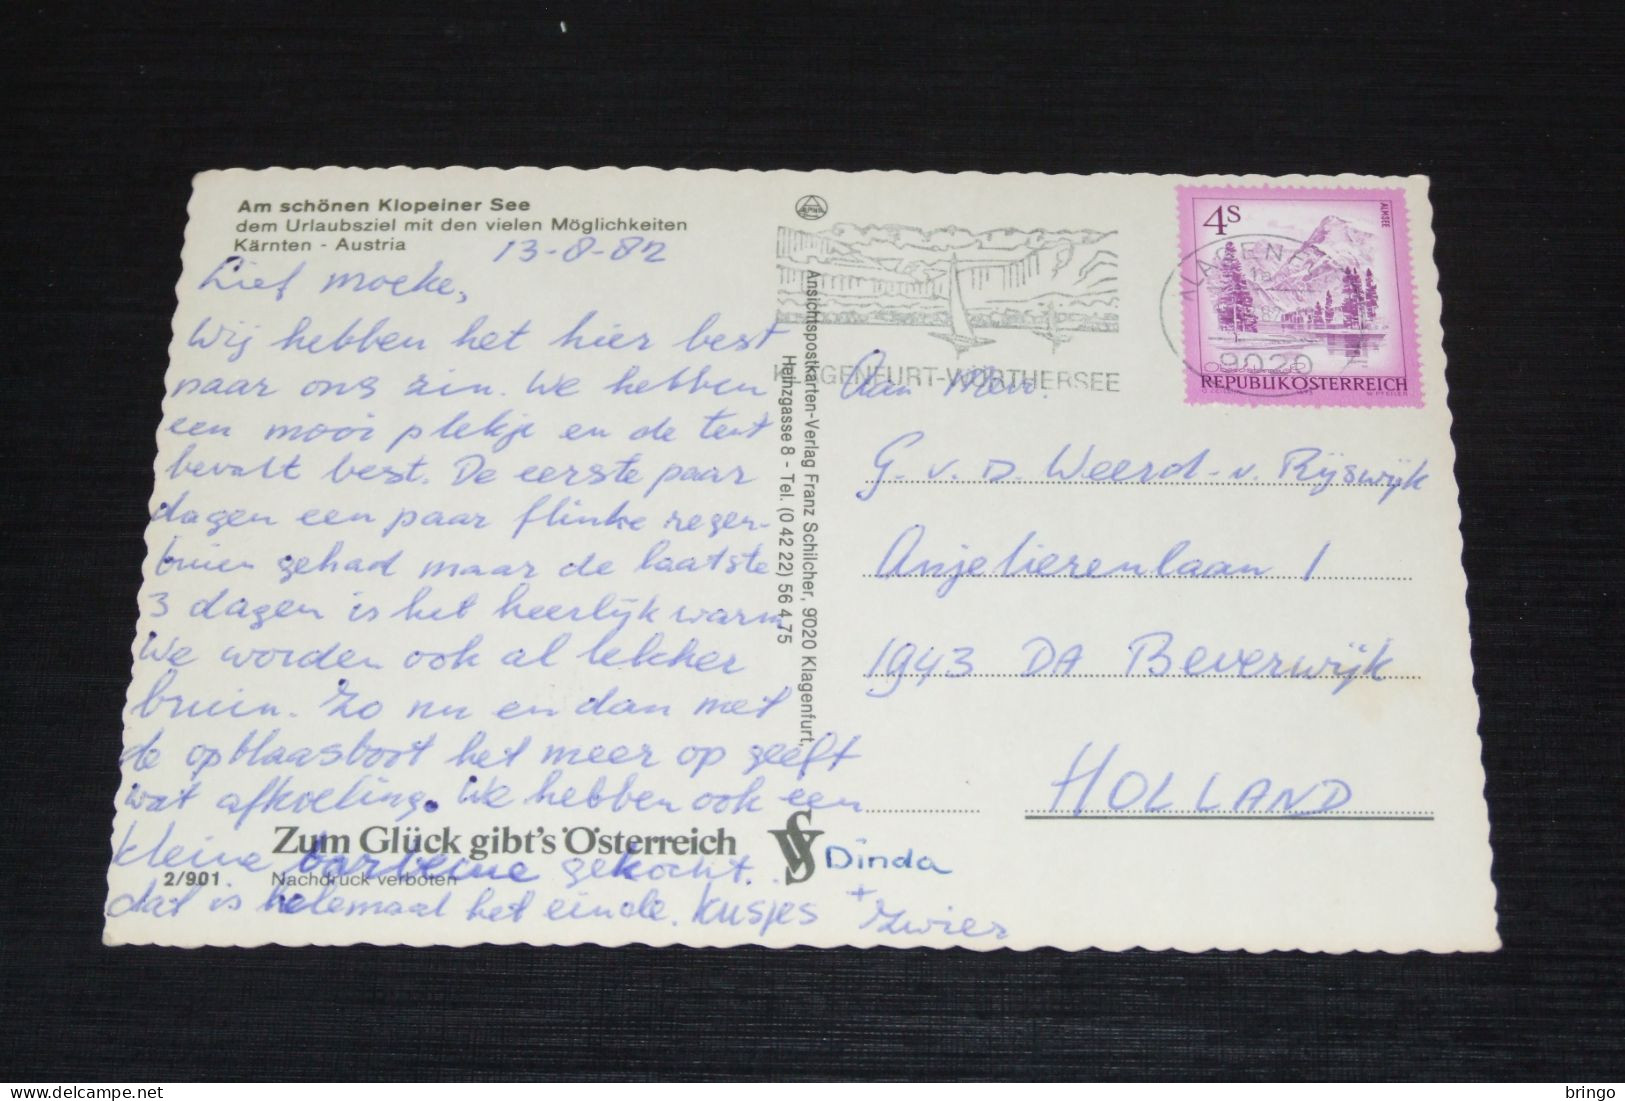 Am schönen Klopeiner See
dem Urlaubsziel mit den vielen Möglichkeiten
Kärnten - Austria
13-8-82
Lief moeke,
Wij hebben het hier best
naar ons zin. We hebben
een mooi plekje en de tent
bevalt best. De eerste paar
dagen een paar flinke regen-
buien gehad maar de laatste
3 dagen is het heerlijk warm
We worden ook al lekker
bruin. Zo nu en dan met
de opblaasboot het meer op geeft
wat afkoeling. We hebben ook een
kleine barbecue gekocht.
dat is helemaal het einde. Kusjes
Dinda
+
Zwier
Zum Glück gibt's Österreich
2/901
Nachdruck verboten
Ansichtspostkarten-Verlag Franz Schilcher, 9020 Klagenfurt,
Heinzgasse 8 - Tel. (0 42 22) 56 4 75
KLAGENFURT-WÖRTHERSEE
KLAGENFURT
9020
4S
ALMSEE
REPUBLIK ÖSTERREICH
Aan Mevr.
G. v. D. Weerd-v. Rijswijk
Anjelierenlaan 1
1943 DA Beverwijk
HOLLAND
bringo